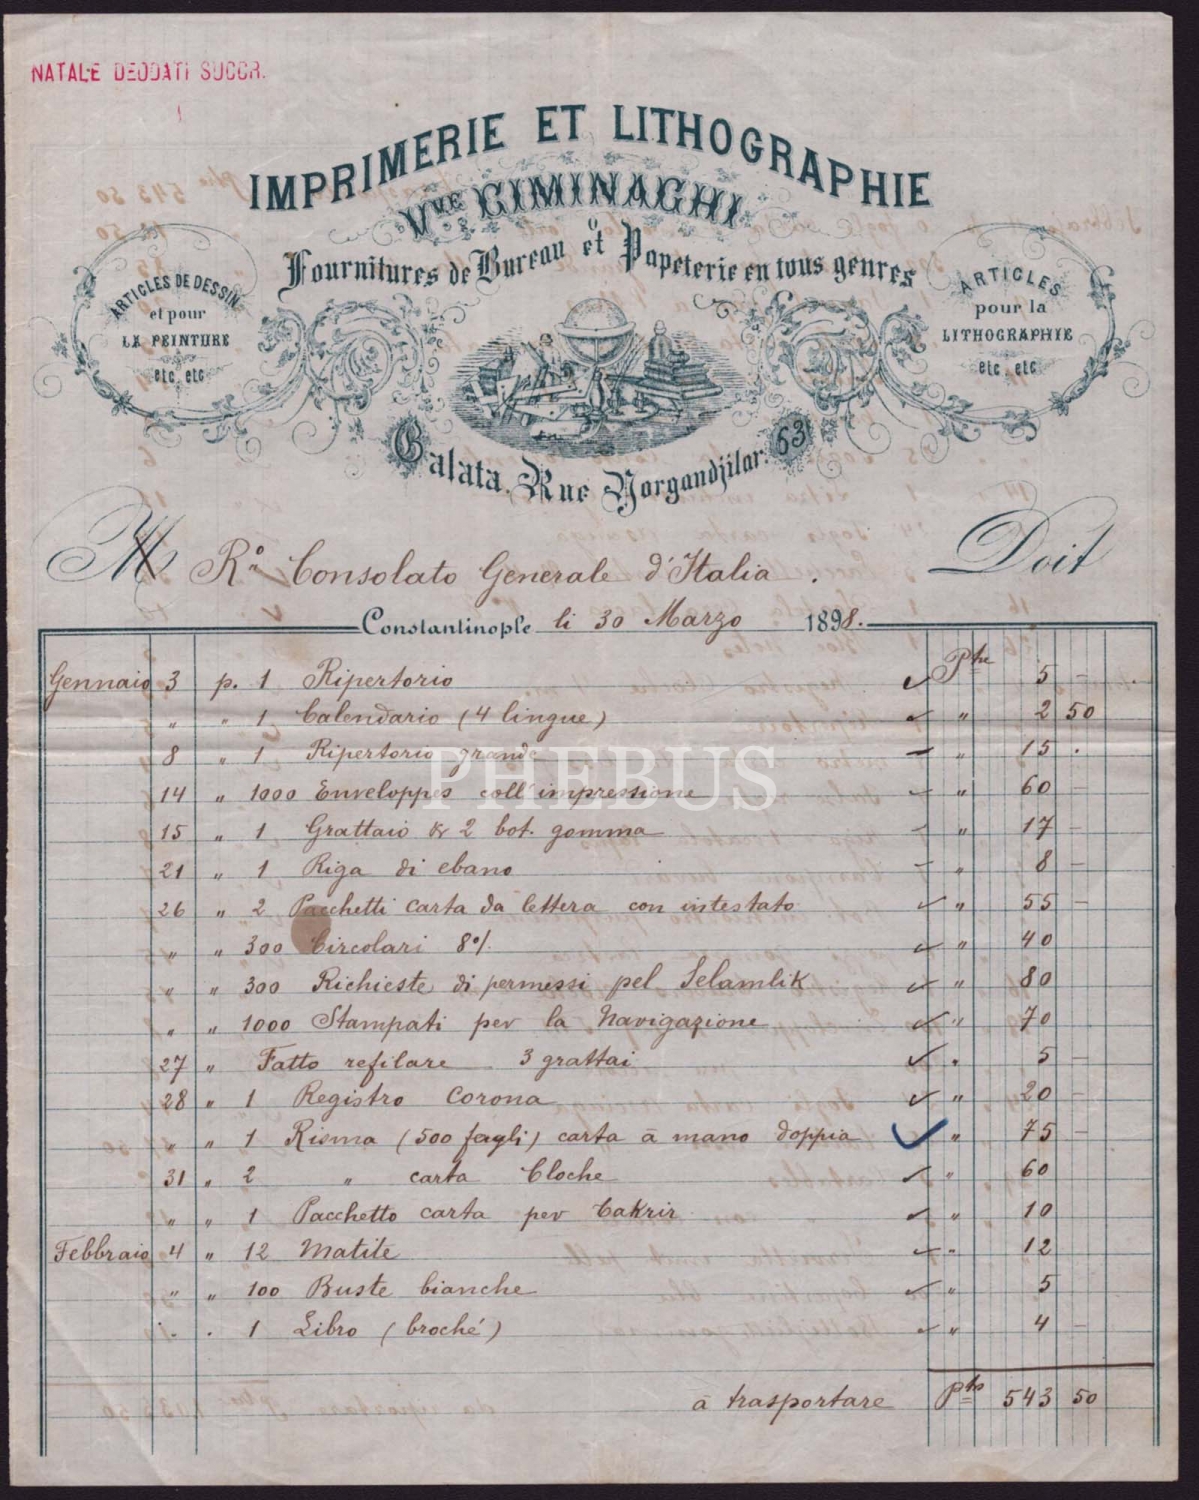 NATALE DEODATI SUCCR.
IMPRIMERIE ET LITHOGRAPHIE
Vve GIMINAGHI
Fournitures de Bureau et Papeterie en tous genres
ARTICLES DE DESSIN
et pour
LA PEINTURE
etc, etc
ARTICLES
pour la
LITHOGRAPHIE
etc etc
Galata, Rue Yorgandjilar 63
M Ro Consolato Generale d'Italia. Doit
Constantinople li 30 Marzo 1898.
Gennaio 3 p. 1 Ripertorio Ptre 5 –
" " 1 Calendario (4 lingue) " 2 50
8 " 1 Ripertorio grande " 15 .
14 " 1000 Enveloppes coll'impressione " 60 –
15 " 1 Grattaio & 2 bot. gomma " 17 –
21 " 1 Riga di ebano " 8 –
26 " 2 Pacchetti carta da lettera con intestato " 55 –
" " 300 Circolari 8% " 40
" " 300 Richieste di permessi pel Selamlik " 80
" " 1000 Stampati per la Navigazione " 70
27 " Fatto refilare 3 grattai " 5 –
28 " 1 Registro Corona " 20 –
" " 1 Risma (500 fogli) carta a mano doppia " 75 –
31 " 2 " carta Cloche " 60
" " 1 Pacchetto carta per Cakrir " 10
Febbraio 4 " 12 Matite " 12
" " 100 Buste bianche " 5
" . 1 Libro (broché) " 4 –
a trasportare Pts 543 50
PHEBUS